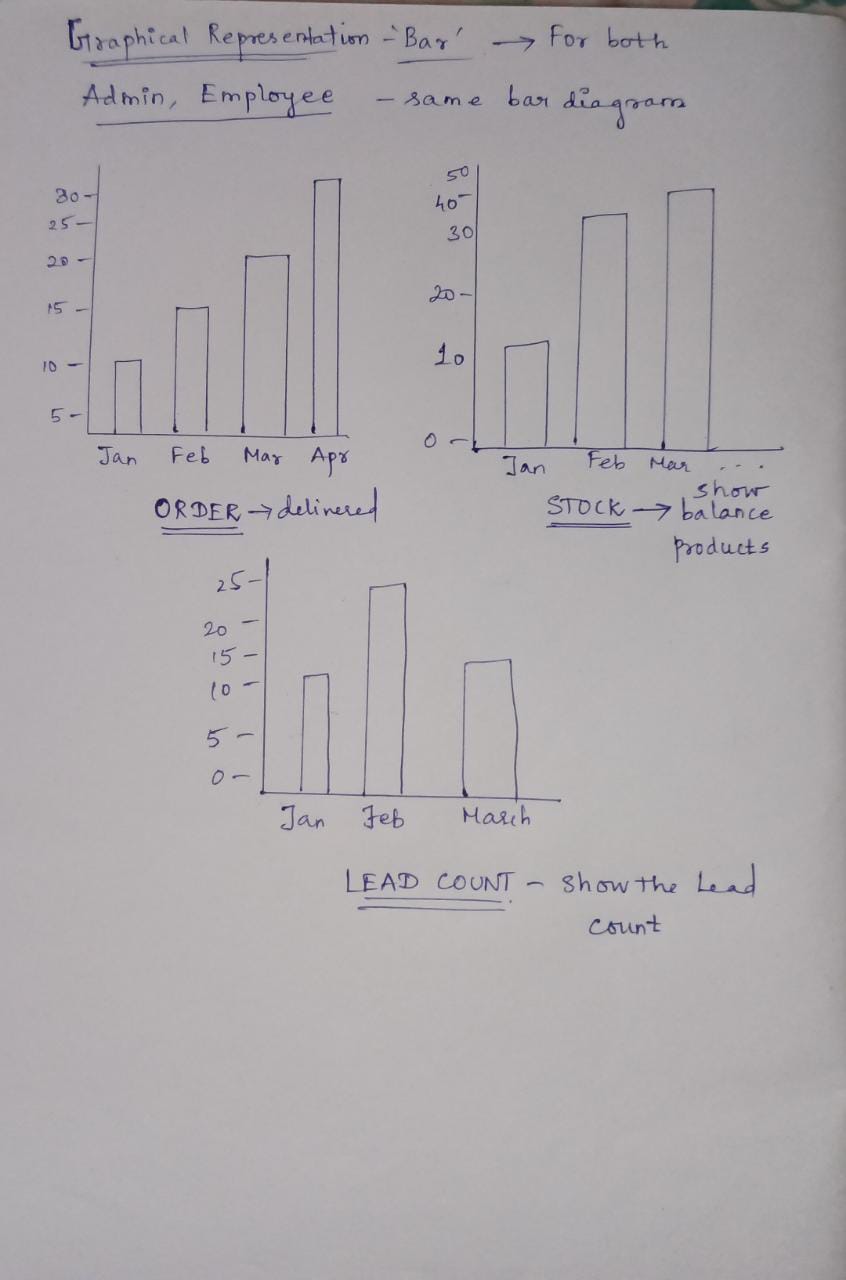 Graphical Representation - 'Bar' → For both
Admin, Employee - same bar diagram
30
25
20
15
10
5
Jan Feb Mar Apr
ORDER → delivered
50
40
30
20
10
0
Jan Feb Mar ...
STOCK → show
balance
products
25
20
15
10
5
0
Jan Feb March
LEAD COUNT - show the Lead
count